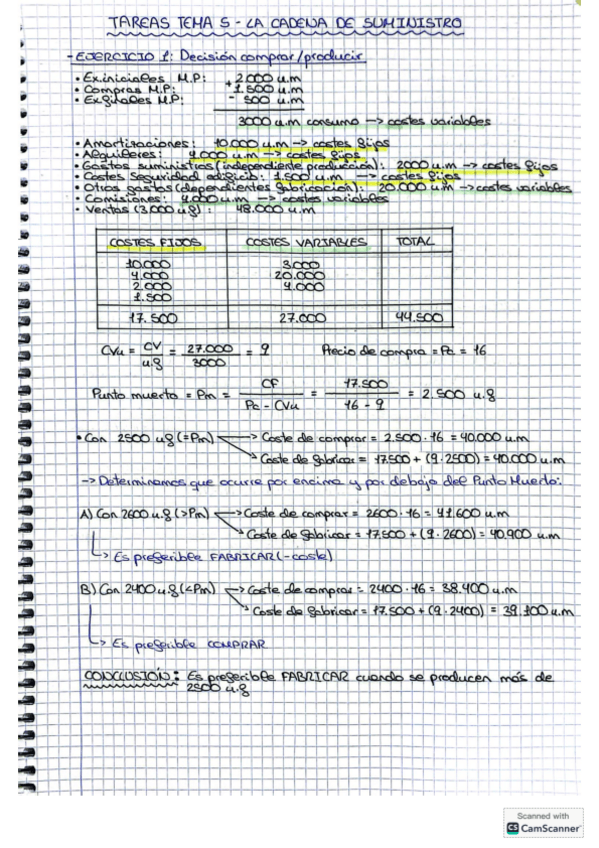 TAREAS TEMA 5 - LA CADENA DE SUMINISTRO
- EJERCICIO 1: Decisión comprar/producir
• Ex. iniciales M.P: 2000 u.m
• Compras M.P: +1.500 u.m
• Ex. finales M.P: - 500 u.m
3000 u.m consumo → costes variables
• Amortizaciones: 10.000 u.m → costes fijos
• Alquileres: 4.000 u.m → costes fijos
• Gastos suministros (independiente producción): 2000 u.m → costes fijos
• Costes Seguridad edificio: 1.500 u.m → costes fijos
• Otros gastos (dependientes fabricación): 20.000 u.m → costes variables
• Comisiones: 4.000 u.m → costes variables
• Ventas (3.000 u.f): 48.000 u.m
COSTES FIJOS COSTES VARIABLES TOTAL
10.000 3.000
4.000 20.000
2.000 4.000
1.500
17.500 27.000 44.500
CVu = CV / u.f = 27.000 / 3000 = 9 Precio de compra = Pc = 16
Punto muerto = Pm = CF / Pc - CVu = 17.500 / 16 - 9 = 2.500 u.f
• Con 2500 u.f (=Pm) → Coste de comprar = 2.500 · 16 = 40.000 u.m
→ Coste de fabricar = 17.500 + (9 · 2500) = 40.000 u.m
→ Determinamos que ocurre por encima y por debajo del Punto Muerto:
A) Con 2600 u.f (>Pm) → Coste de comprar = 2600 · 16 = 41.600 u.m
→ Coste de fabricar = 17.500 + (9 · 2600) = 40.900 u.m
↳ Es preferible FABRICAR (- coste)
B) Con 2400 u.f (<Pm) → Coste de comprar = 2400 · 16 = 38.400 u.m
→ Coste de fabricar = 17.500 + (9 · 2400) = 39.100 u.m
↳ Es preferible COMPRAR
CONCLUSIÓN: Es preferible FABRICAR cuando se producen más de
2500 u.f
Scanned with
CS CamScanner